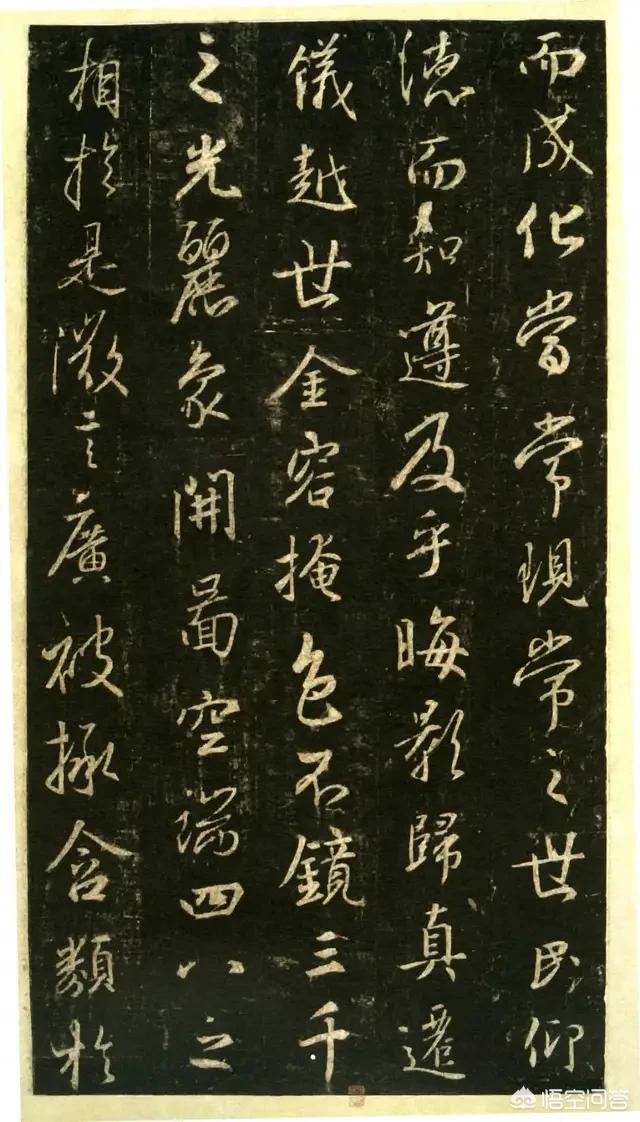 而成化當常現常之世民仰
德而知遵及乎晦影歸真遷
儀越世金容掩色不鏡三千
之光麗象開圖空端四八之
相於是微言廣被拯含類於
悟空问答